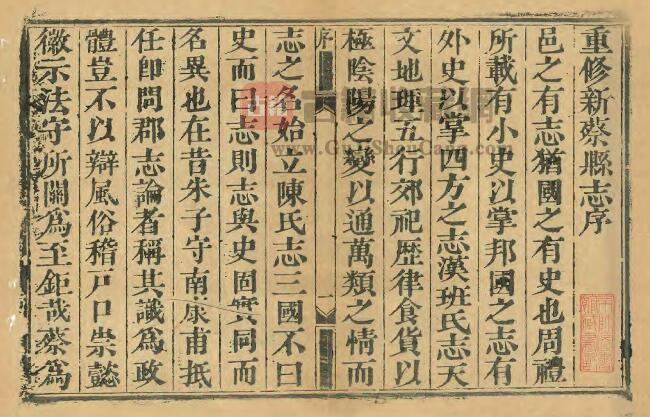 重修新蔡縣志序
邑之有志猶國之有史也周禮
所載有小史以掌邦國之志有
外史以掌四方之志漢班氏志天
文地理五行郊祀歷律食貨以
極陰陽之變以通萬類之情而
序
一
志之名始立陳氏志三國不曰
史而曰志則志與史固實同而
名異也在昔朱子守南康甫抵
任即問郡志論者稱其識為政
體豈不以辯風俗稽戸口崇懿
徽示法守所關為至鉅哉蔡為
古籍
www.GuJiShouCang.com